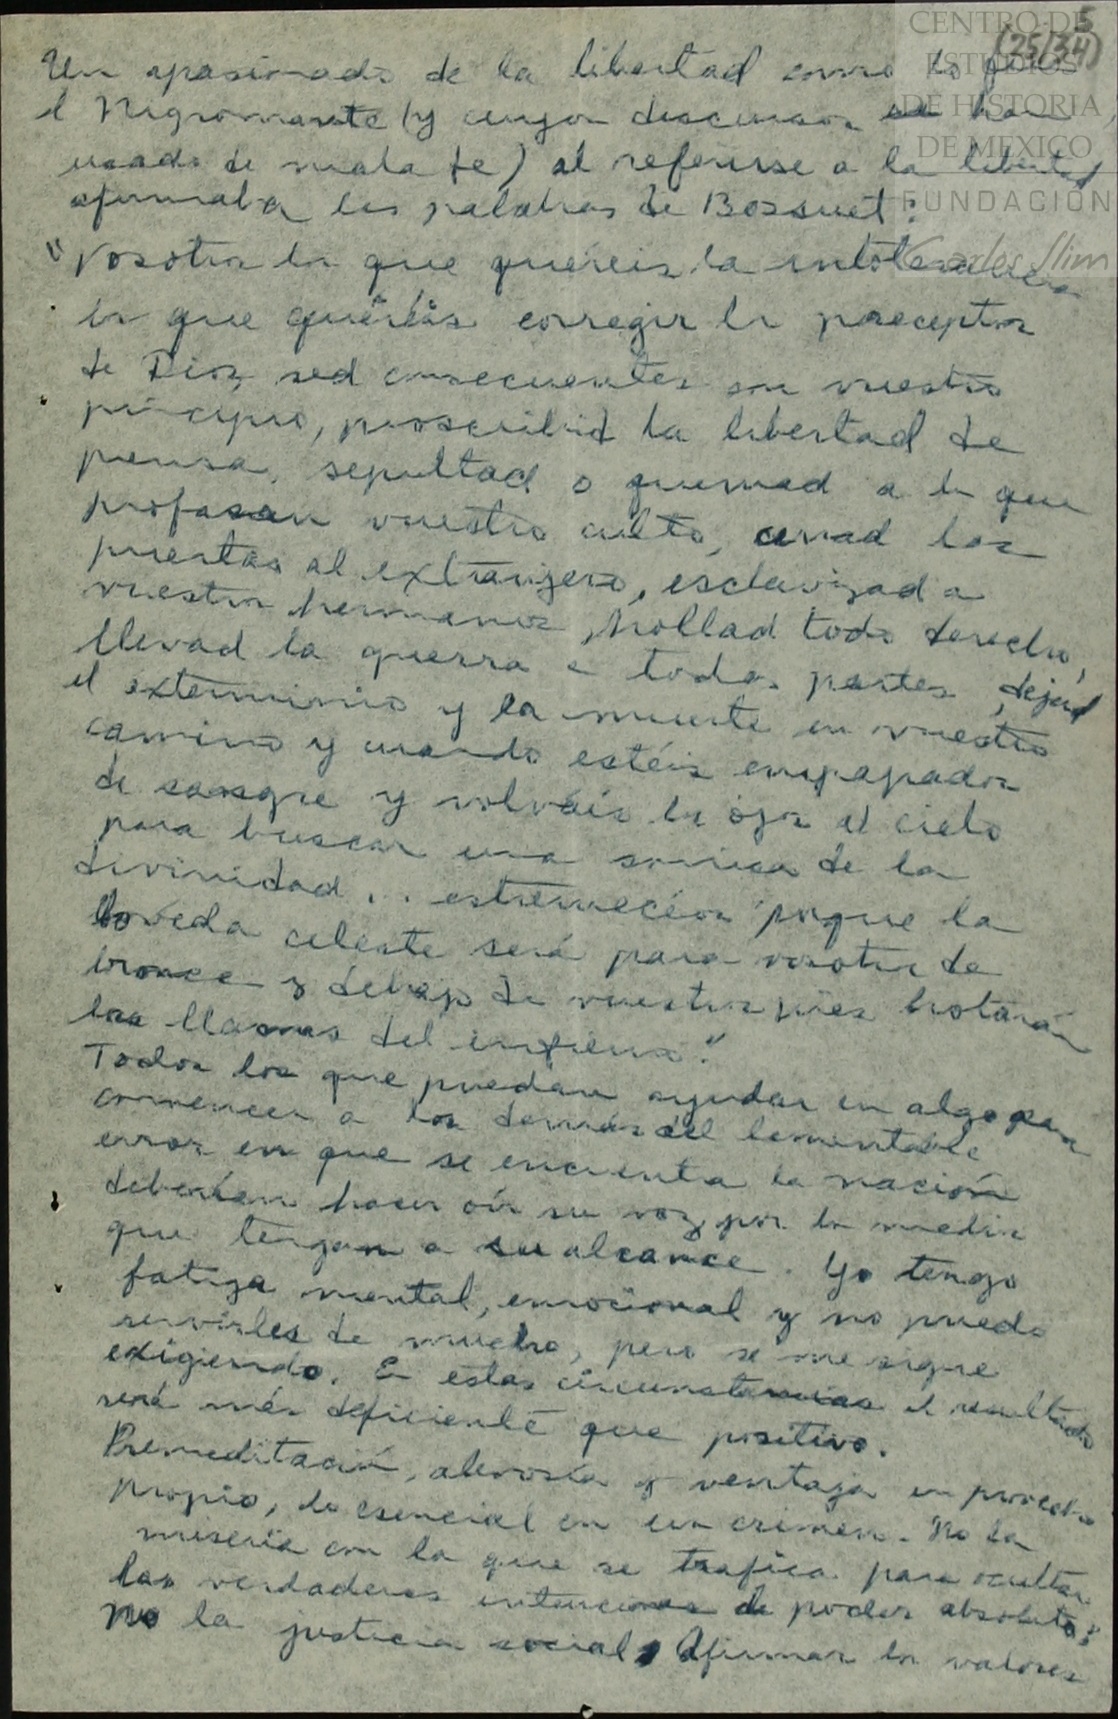 5
(25/34)
CENTRO DE
ESTUDIOS
DE HISTORIA
DE MEXICO
FUNDACIÓN
Carlos Slim
Un apasionado de la libertad como lo fue
el Nigromante (y cuyos discursos se han
usado de mala fe) al referirse a la libertad
afirmaba las palabras de Bossuet:
"Vosotros los que queréis la intolerancia
los que queréis corregir los preceptos
de Dios, sed consecuentes con vuestro
principio, proscribid la libertad de
prensa, sepultad o quemad a los que
profanan vuestro culto, cerrad las
puertas al extranjero, esclavizad a
vuestros hermanos, hollad todo derecho,
llevad la guerra a todas partes, dejad
el exterminio y la muerte en vuestro
camino y cuando estéis empapados
de sangre y volváis los ojos al cielo
para buscar una sonrisa de la
divinidad... estremeceos porque la
bóveda celeste será para vosotros de
bronce y debajo de vuestros pies brotarán
las llamas del infierno."
Todos los que puedan ayudar en algo para
convencer a los demás del lamentable
error en que se encuentra la nación
deberían hacer oír su voz, por los medios
que tengan a su alcance. Yo tengo
fatiga mental, emocional y no puedo
servirles de mucho, pero se me sigue
exigiendo. En estas circunstancias el resultado
será más deficiente que positivo.
Premeditación, alevosía y ventaja en provecho
propio, lo esencial en un crimen. No la
miseria con la que se trafica para ocultar
las verdaderas intenciones de poder absoluto;
no la justicia social, Afirmar los valores